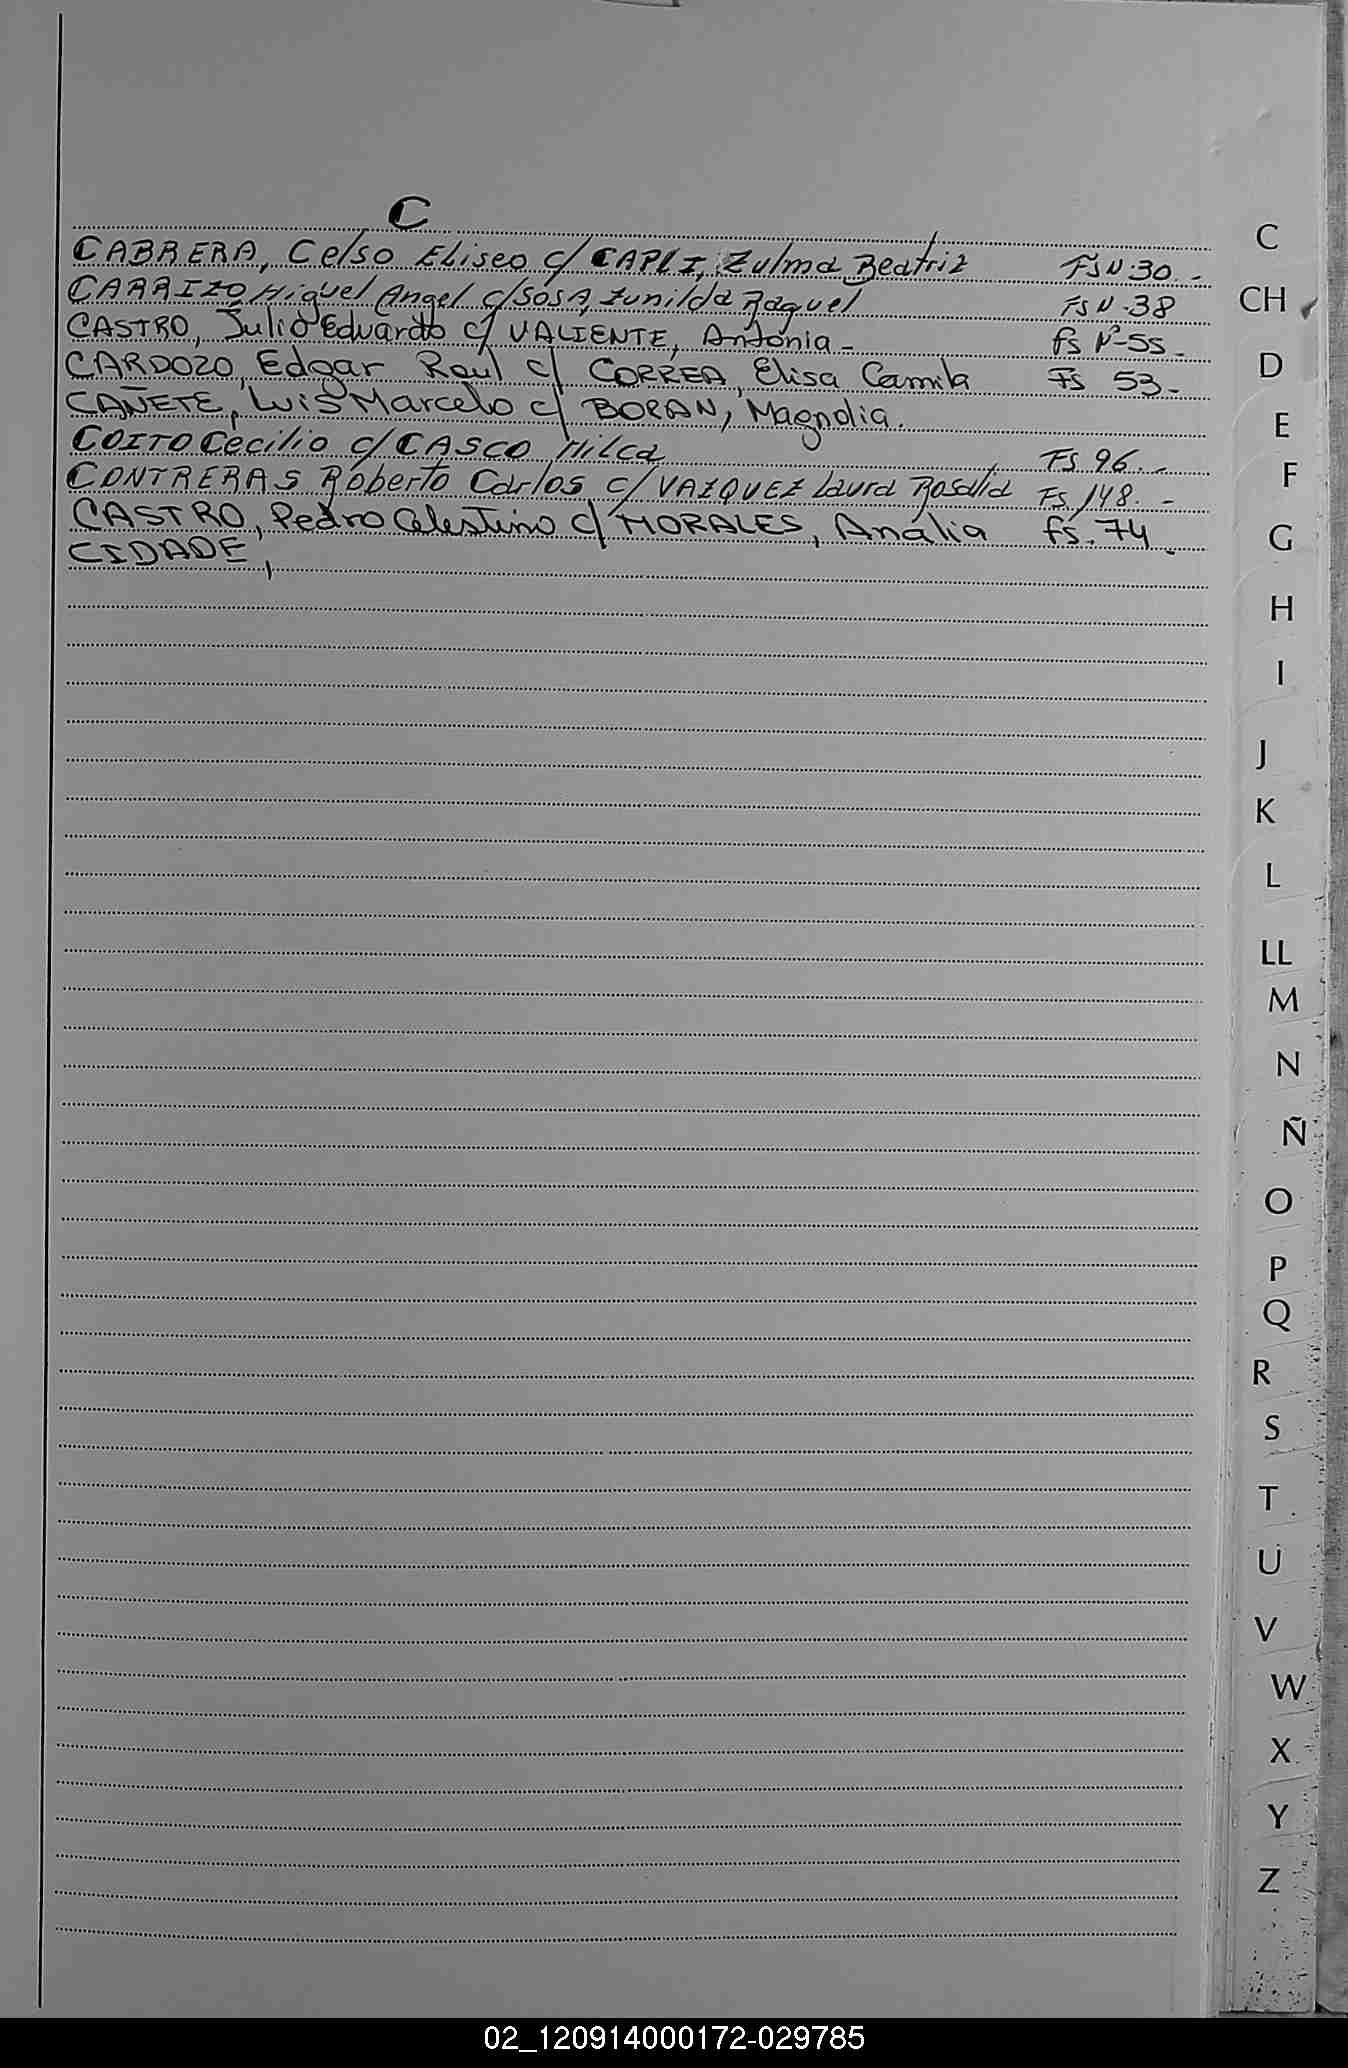 C
CABRERA, Celso Eliseo c/ CAPLI, Zulma Beatriz FS N.30.-
CARRIZO, Miguel Angel c/ SOSA, Zunilda Raquel FS N-38
CASTRO, Julio Eduardo c/ VALIENTE, Antonia - fs Nº-55.
CARDOZO, Edgar Raul c/ CORREA, Elisa Camila Fs 53.-
CAÑETE, Luis Marcelo c/ BORAN, Magnolia.
COITO Cecilio c/ CASCO Hilca FS. 96..-
CONTRERAS Roberto Carlos c/ VAZQUEZ Laura Rosalia FS. 148.-
CASTRO, Pedro Celestino c/ MORALES, Analia fs. 74.
CIDADE,
C
CH
D
E
F
G
H
I
J
K
L
LL
M
N
Ñ
O
P
Q
R
S
T
U
V
W
X
Y
Z
02_120914000172-029785